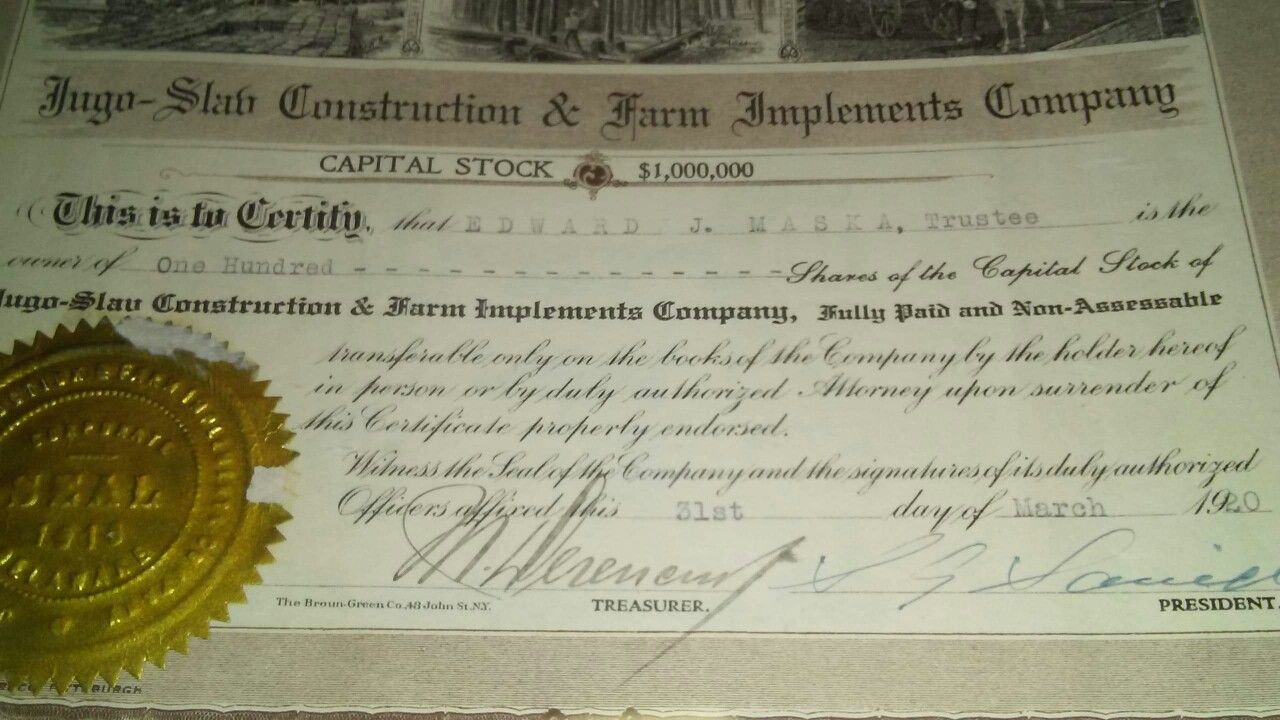 Jugo-Slav Construction & Farm Implements Company
CAPITAL STOCK $1,000,000
This is to Certify, that EDWARD J. MASKA, Trustee is the
owner of One Hundred - - - - - - - - - - - - - - Shares of the Capital Stock of
Jugo-Slav Construction & Farm Implements Company, Fully Paid and Non-Assessable
transferable only on the books of the Company by the holder hereof
in person or by duly authorized Attorney upon surrender of
this Certificate properly endorsed.
Witness the Seal of the Company and the signatures of its duly authorized
Officers affixed this 31st day of March 1920
The Broun-Green Co. 48 John St. N.Y. TREASURER. PRESIDENT.
CORPORATE
SEAL
1919
DELAWARE
PITTSBURGH